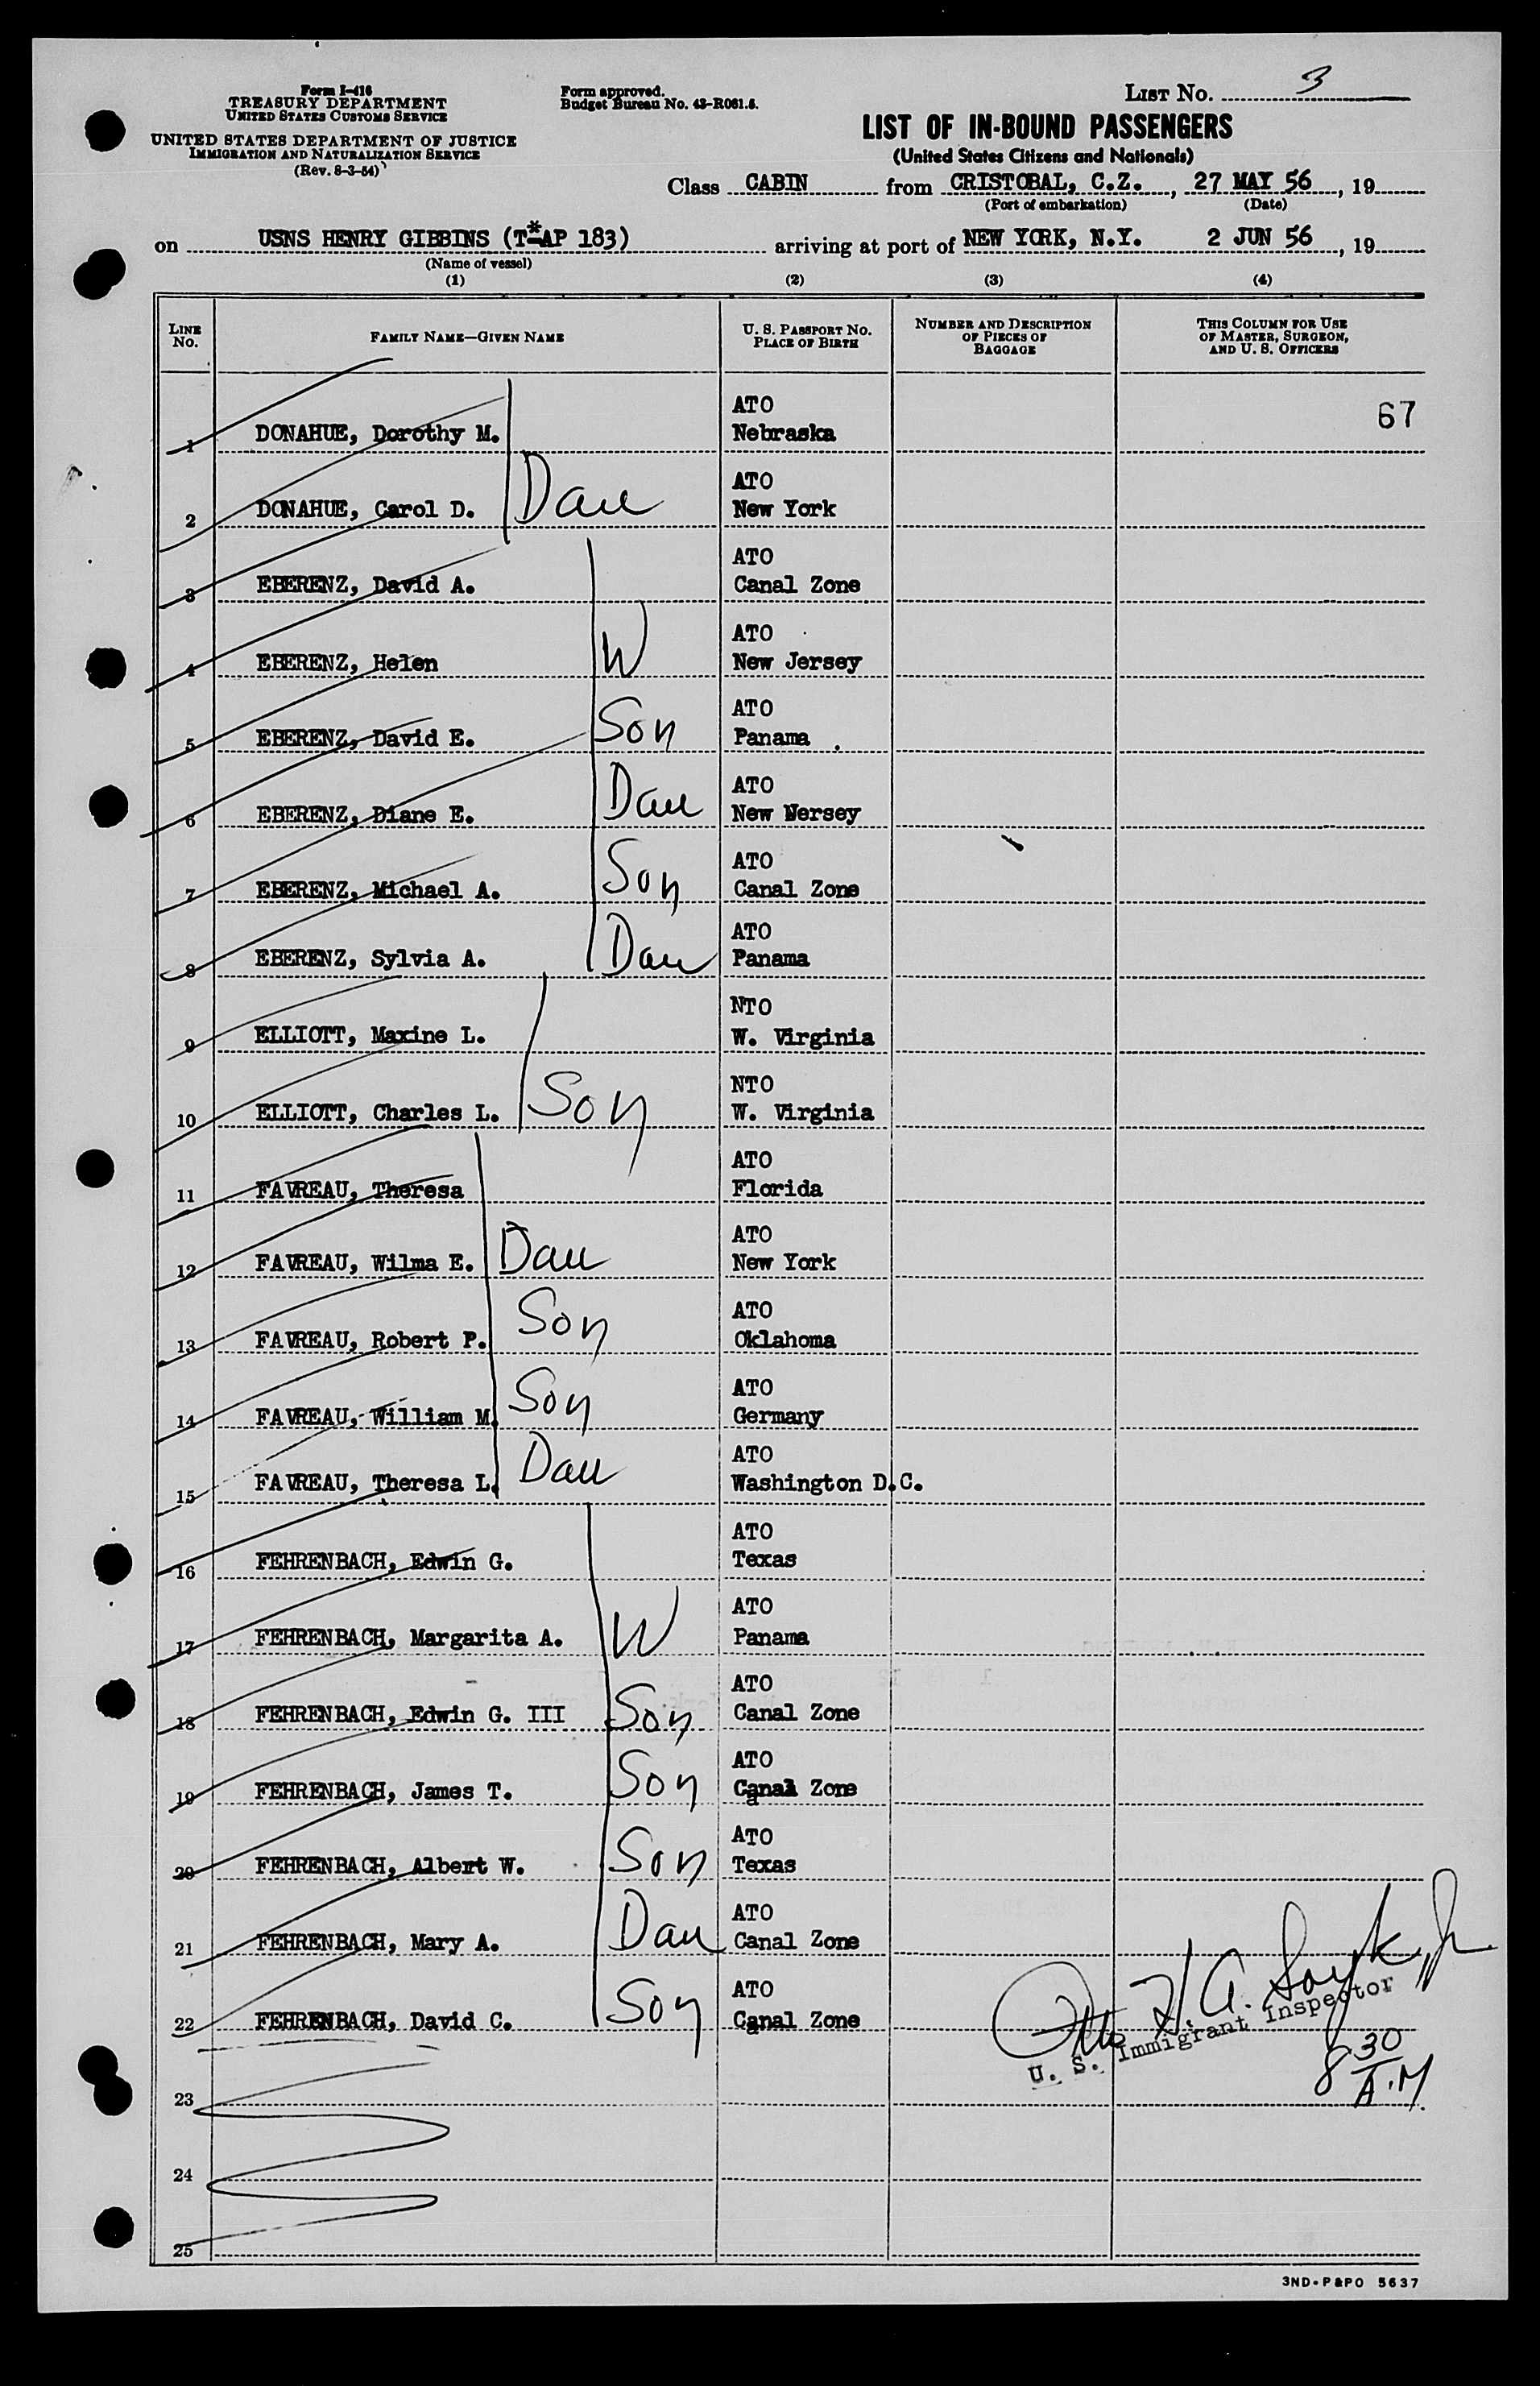 Form I-416
TREASURY DEPARTMENT
UNITED STATES CUSTOMS SERVICE
UNITED STATES DEPARTMENT OF JUSTICE
IMMIGRATION AND NATURALIZATION SERVICE
(Rev. 8-3-54)
Form approved.
Budget Bureau No. 43-R061.5.
LIST No. 3
LIST OF IN-BOUND PASSENGERS
(United States Citizens and Nationals)
Class CABIN from CRISTOBAL, C.Z., 27 MAY 56, 19
(Port of embarkation) (Date)
on USNS HENRY GIBBINS (T*-AP 183) arriving at port of NEW YORK, N.Y. 2 JUN 56, 19
(Name of vessel)
(1) (2) (3) (4)
LINE No. FAMILY NAME—GIVEN NAME U. S. PASSPORT No. PLACE OF BIRTH NUMBER AND DESCRIPTION OF PIECES OF BAGGAGE THIS COLUMN FOR USE OF MASTER, SURGEON, AND U. S. OFFICERS
ATO 67
1 DONAHUE, Dorothy M. Nebraska
ATO
2 DONAHUE, Carol D. Dau New York
ATO
3 EBERENZ, David A. Canal Zone
ATO
4 EBERENZ, Helen W New Jersey
ATO
5 EBERENZ, David E. Son Panama
ATO
6 EBERENZ, Diane E. Dau New Nersey
ATO
7 EBERENZ, Michael A. Son Canal Zone
ATO
8 EBERENZ, Sylvia A. Dau Panama
NTO
9 ELLIOTT, Maxine L. W. Virginia
NTO
10 ELLIOTT, Charles L. Son W. Virginia
ATO
11 FAVREAU, Theresa Florida
ATO
12 FAVREAU, Wilma E. Dau New York
ATO
13 FAVREAU, Robert P. Son Oklahoma
ATO
14 FAVREAU, William M. Son Germany
ATO
15 FAVREAU, Theresa L. Dau Washington D.C.
ATO
16 FEHRENBACH, Edwin G. Texas
ATO
17 FEHRENBACH, Margarita A. W Panama
ATO
18 FEHRENBACH, Edwin G. III Son Canal Zone
ATO
19 FEHRENBACH, James T. Son Canal Zone
ATO
20 FEHRENBACH, Albert W. Son Texas
ATO
21 FEHRENBACH, Mary A. Dau Canal Zone
ATO
22 FEHRENBACH, David C. Son Canal Zone
U. S. Immigrant Inspector
8 30 A.M.
23
24
25
3ND-P&PO 5637